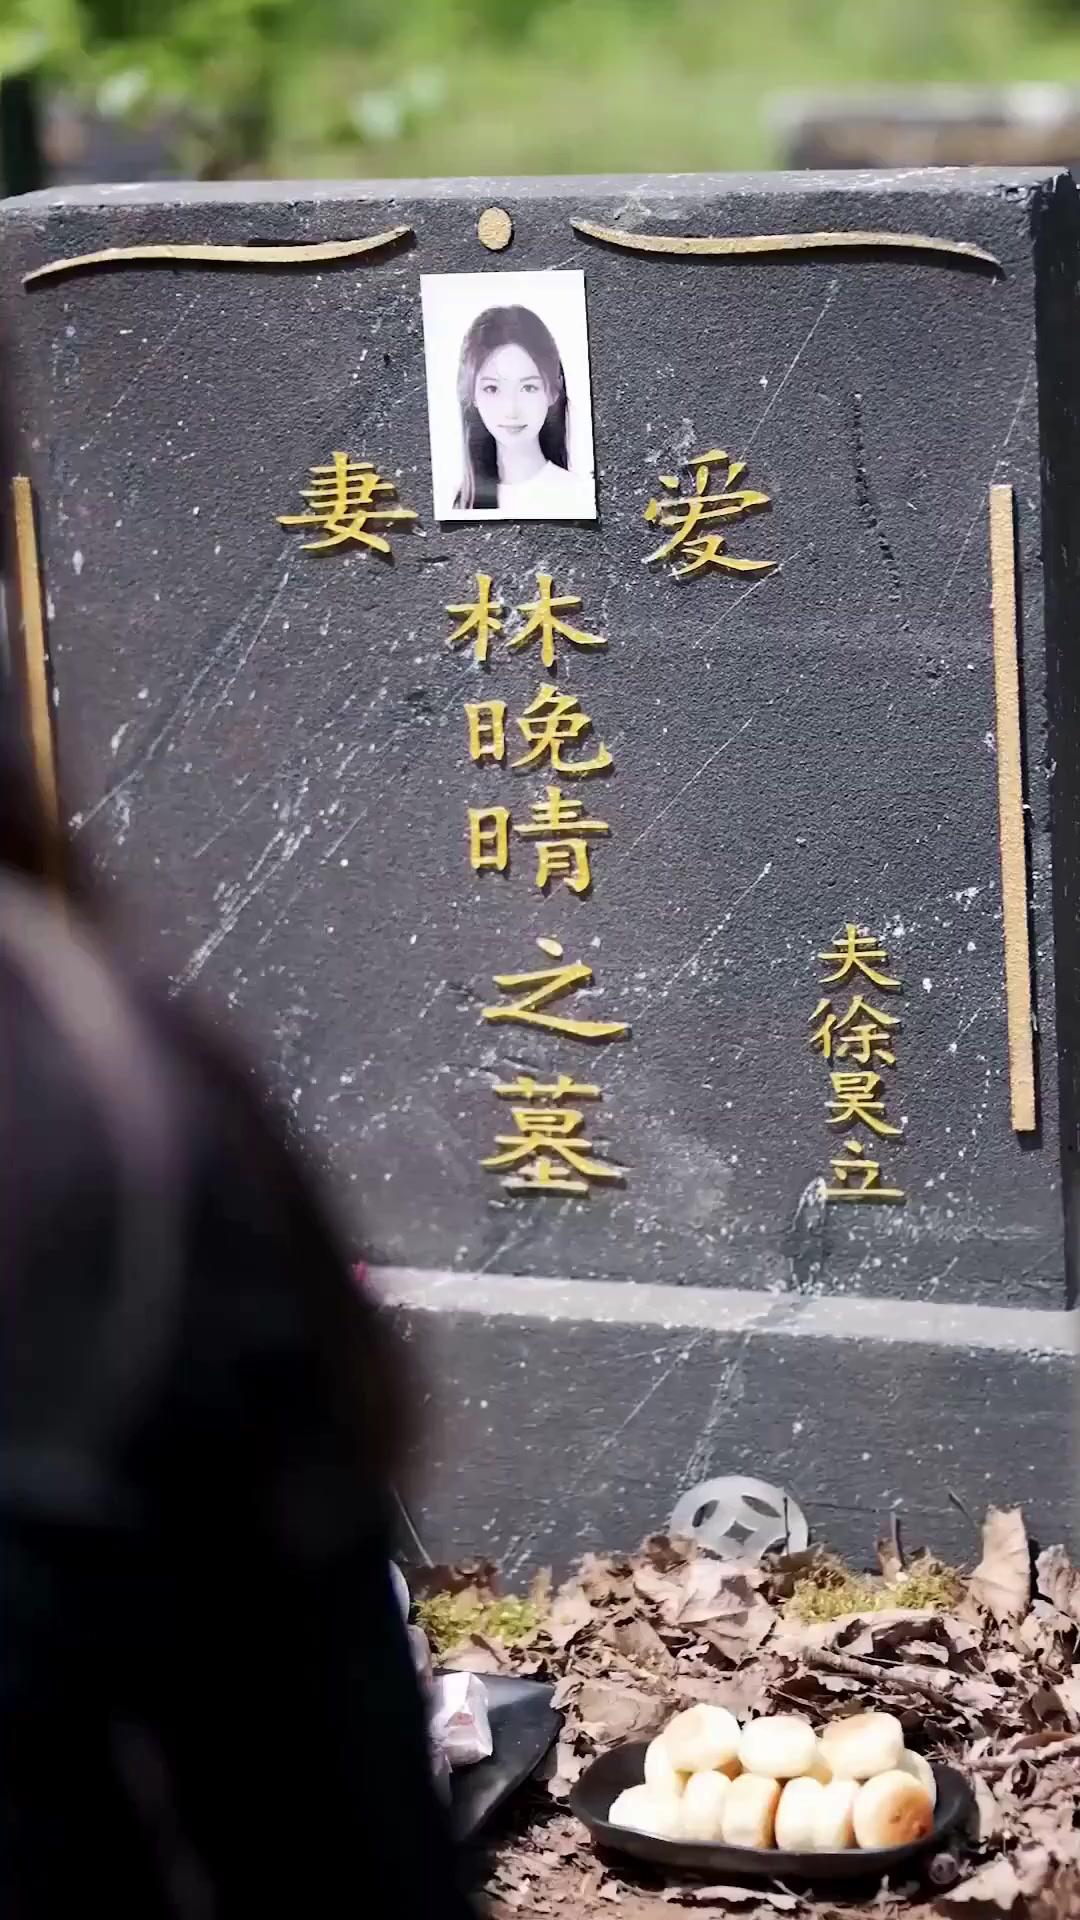 爱妻
林晚晴之墓
夫徐昊立